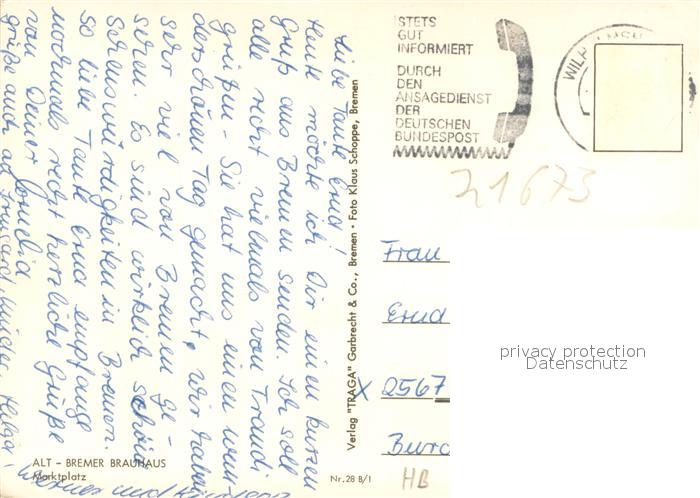 Liebe Tante Erna!
Heute möchte ich Dir einen kurzen
Gruß aus Bremen senden. Ich soll
alle recht vielmals von Traudi
grüßen – Sie hat uns einen wun-
derschönen Tag gemacht, wir haben
sehr viel von Bremen ge-
sehen. Es sind wirklich schöne
Sehenswürdigkeiten in Bremen.
So liebe Tante Erna empfange
nochmals recht herzliche Grüße
von Deiner
grüße auch Helga,
Werner und
ALT - BREMER BRAUHAUS
Marktplatz
Nr. 28 B/1
Verlag "TRAGA" Garbrecht & Co., Bremen • Foto Klaus Schoppe, Bremen
STETS
GUT
INFORMIERT
DURCH
DEN
ANSAGEDIENST
DER
DEUTSCHEN
BUNDESPOST
WILH
21673
Frau
Erna
X 2567
HB
privacy protection
Datenschutz